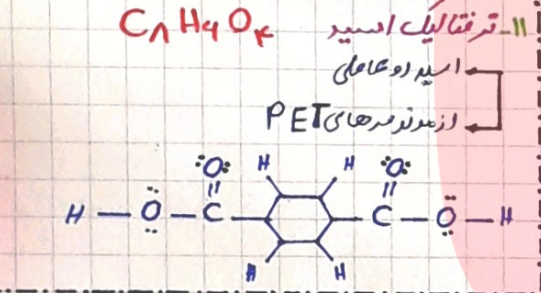 ۱۱- ترفتالیک اسید C₈H₆O₄
اسید دو عاملی
از مونومرهای PET
:O: H H :O:
H — O — C C — O — H
H H